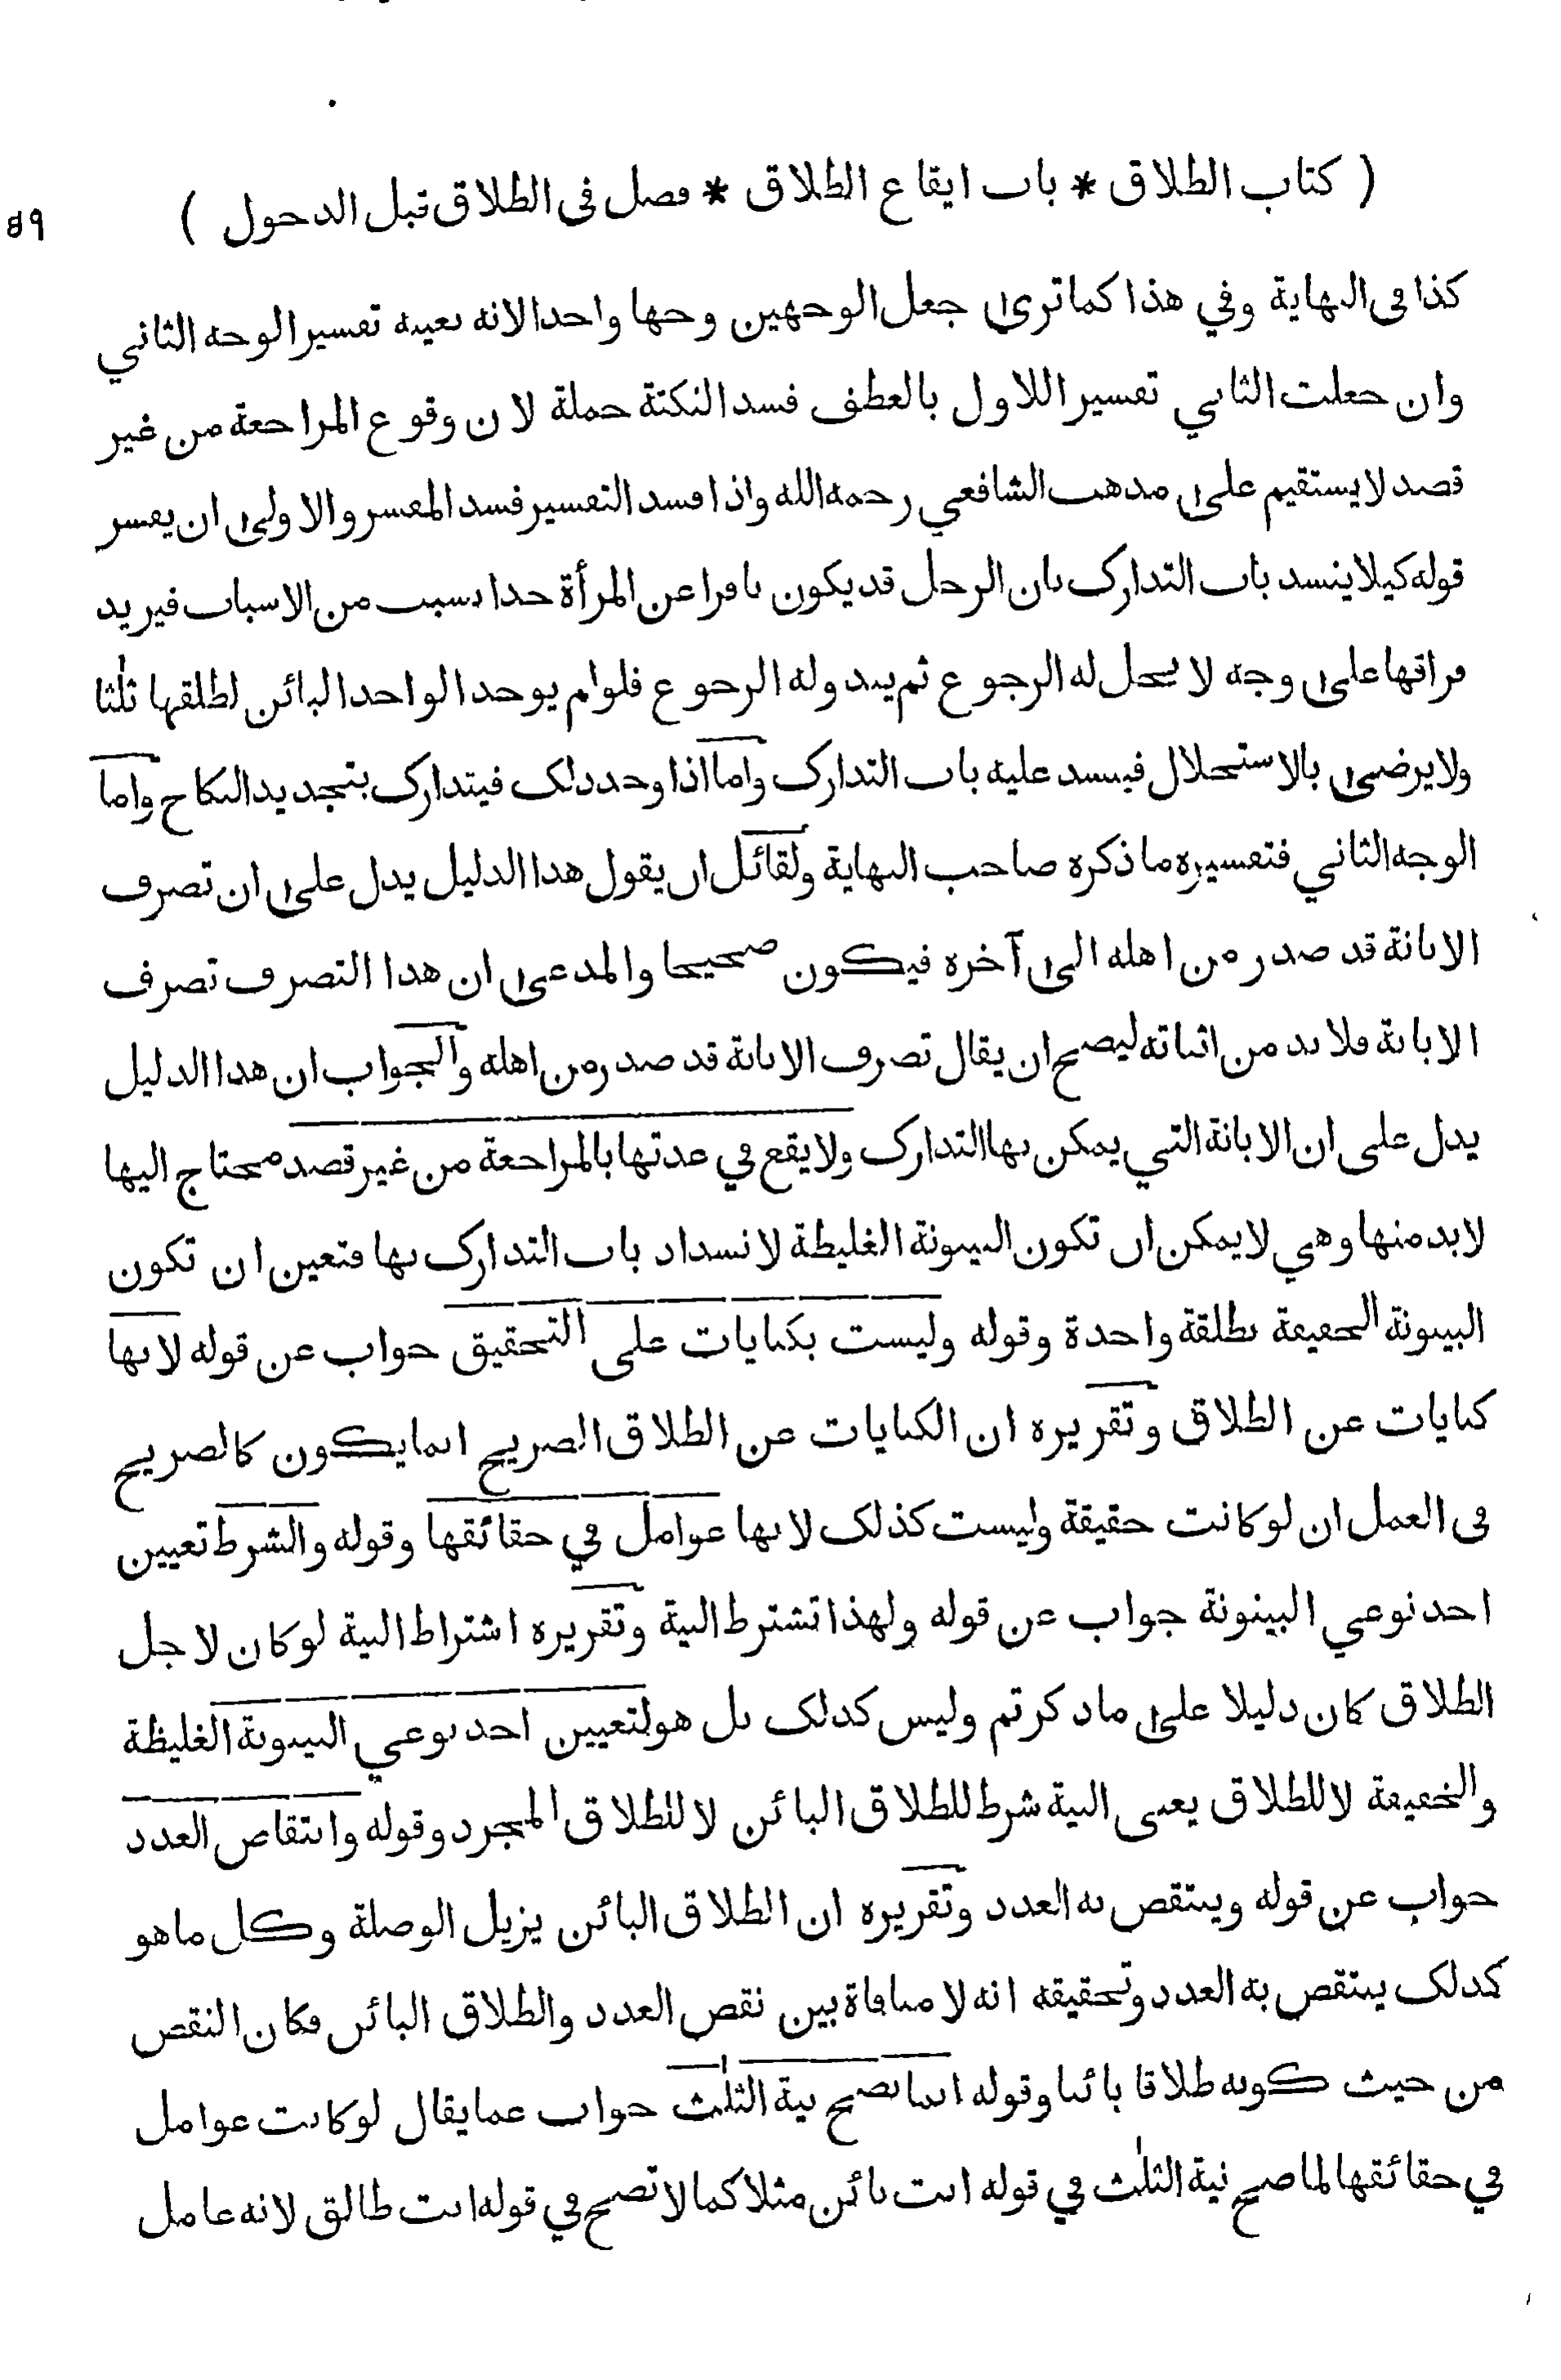 ( كتاب الطلاق * باب ايقاع الطلاق * فصل في الطلاق قبل الدخول )
٤٩
كذا في النهاية وفي هذا كما ترى جعل الوجهين وجها واحدا لانه بعينه تفسير الوجه الثاني
وان جعلت الثاني تفسير اللاول بالعطف فسد النكتة جملة لان وقوع المراجعة من غير
قصد لا يستقيم على مذهب الشافعي رحمه الله واذا فسد التفسير فسد المفسر والاولى ان يفسر
قوله كيلا ينسد باب التدارك بان الرجل قد يكون نافرا عن المرأة جدا بسبب من الاسباب فيريد
فراقها على وجه لا يحل له الرجوع ثم يبدو له الرجوع فلو لم يوجد الواحد البائن لطلقها ثلثا
ولا يرضى بالاستحلال فينسد عليه باب التدارك واما اذا وجد ذلك فيتدارك بتجديد النكاح واما
الوجه الثاني فتفسيره ما ذكره صاحب النهاية ولقائل ان يقول هذا الدليل يدل على ان تصرف
الابانة قد صدر من اهله الى آخره فيكون صحيحا والمدعى ان هذا التصرف تصرف
الابانة فلا بد من اثباته ليصح ان يقال تصرف الابانة قد صدر من اهله والجواب ان هذا الدليل
يدل على ان الابانة التي يمكن بها التدارك ولا يقع في عدتها بالمراجعة من غير قصد محتاج اليها
لا بد منها وهي لا يمكن ان تكون البينونة الغليظة لانسداد باب التدارك بها فتعين ان تكون
البينونة الخفيفة بطلقة واحدة وقوله وليست بكنايات على التحقيق جواب عن قوله لانها
كنايات عن الطلاق وتقريره ان الكنايات عن الطلاق الصريح انما يكون كالصريح
في العمل ان لو كانت حقيقة وليست كذلك لانها عوامل في حقائقها وقوله والشرط تعيين
احد نوعي البينونة جواب عن قوله ولهذا تشترط النية وتقريره اشتراط النية لو كان لاجل
الطلاق كان دليلا على ما ذكرتم وليس كذلك بل هو لتعيين احد نوعي البينونة الغليظة
والخفيفة لا للطلاق يعني النية شرط للطلاق البائن لا للطلاق المجرد وقوله وانتقاص العدد
جواب عن قوله وينتقص به العدد وتقريره ان الطلاق البائن يزيل الوصلة وكل ما هو
كذلك ينتقص به العدد وتحقيقه انه لا منافاة بين نقص العدد والطلاق البائن فكان النقص
من حيث كونه طلاقا بائنا وقوله انما تصح نية الثلٰث جواب عما يقال لو كانت عوامل
في حقائقها لما صح نية الثلٰث في قوله انت بائن مثلا كما لا تصح في قوله انت طالق لانه عامل